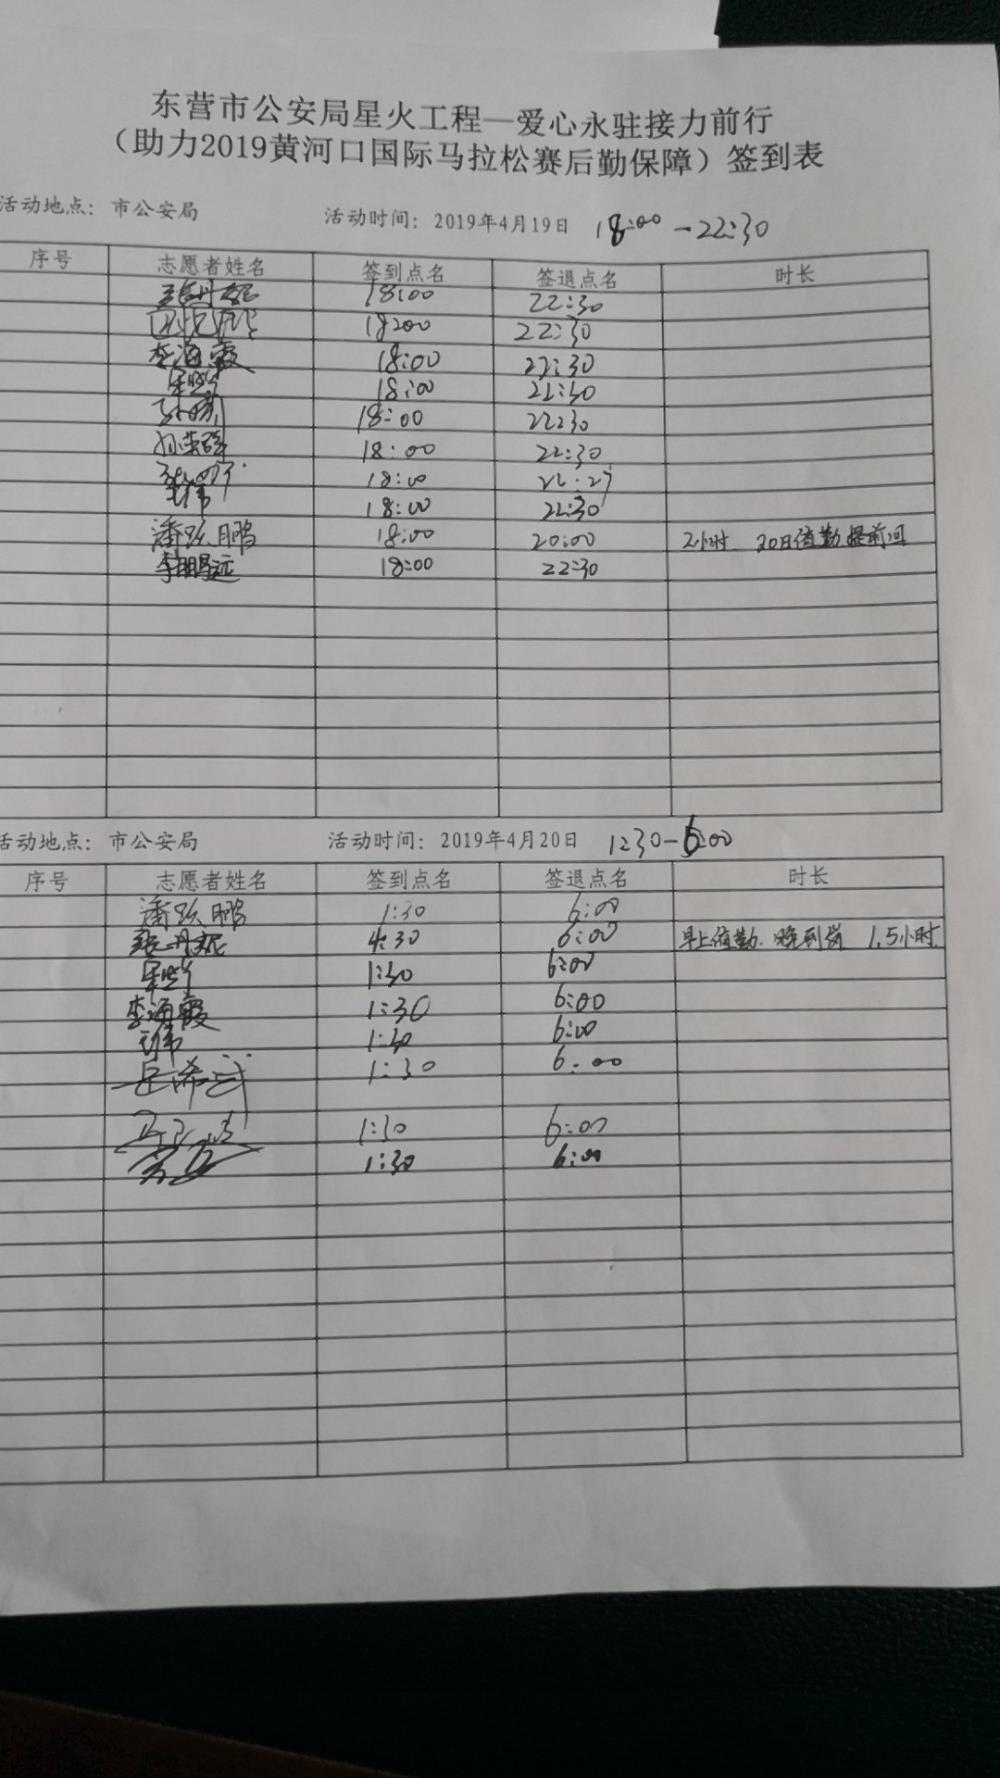 东营市公安局星火工程—爱心永驻接力前行
（助力2019黄河口国际马拉松赛后勤保障）签到表
活动地点：市公安局 活动时间：2019年4月19日 18:00-22:30
序号 志愿者姓名 签到点名 签退点名 时长
18:00 22:30
18:00 22:30
李海霞 18:00 22:30
18:00 22:30
18:00 22:30
18:00 22:30
18:00
18:00 22:30
潘跃鹏 18:00 20:00 2小时 20日值勤提前回
李鹏远 18:00 22:30
活动地点：市公安局 活动时间：2019年4月20日 1:30-6:00
序号 志愿者姓名 签到点名 签退点名 时长
潘跃鹏 1:30 6:00
张丹妮 4:30 6:00 早上值勤 晚到岗 1.5小时
1:30 6:00
李海霞 1:30 6:00
1:30 6:00
1:30 6:00
1:30 6:00
1:30 6:00